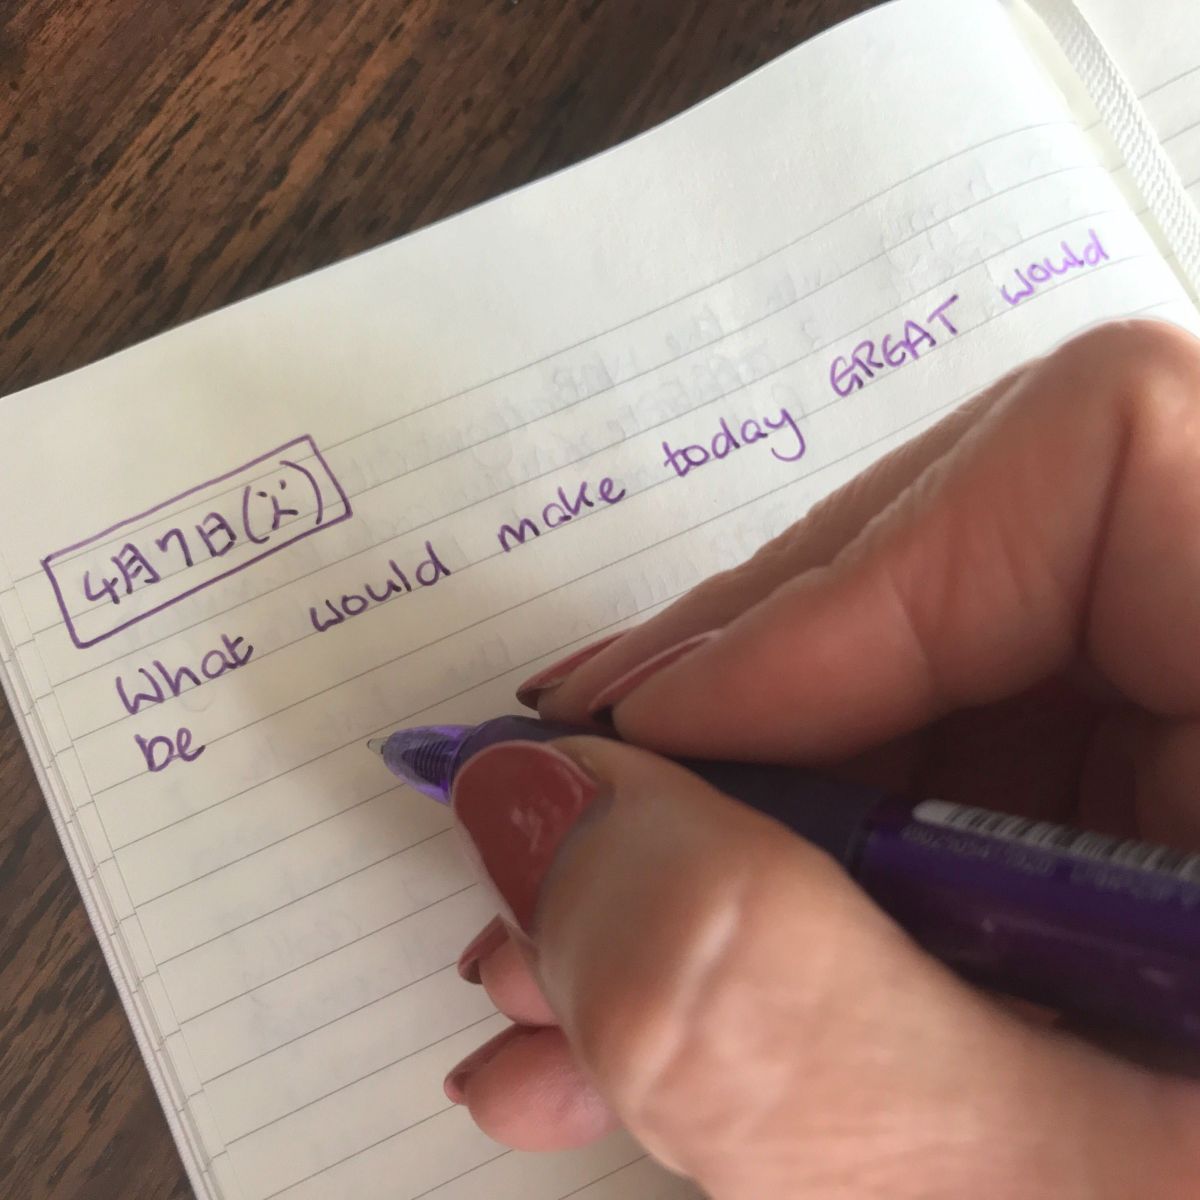 4月7日(火)
What would make today GREAT would
be